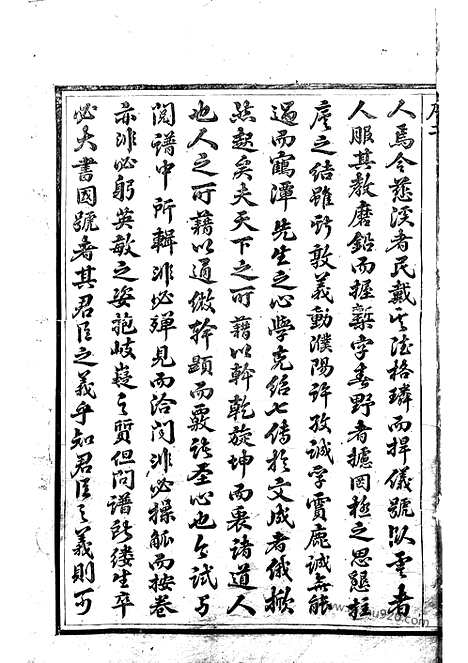 序二
人焉令慈溪者民戴其德格璘而捍儀號以雲者
人服其教磨鉛而握槧字春野者據罔極之思懇拄
序之結雖於敦義動濮陽許孜誠孚賓鹿誠無能
過而鶴潭先生之心學克紹七傳於文成者俄掀
然起矣夫天下之所藉以斡乾旋坤而裹諸道人
也人之所藉以通微幹顯而覈諸聖心也今試与
閱譜中所輯非必殫見而洽聞非必操觚而按卷
亦非必躬英敏之姿苑岐嶷之質但問譜所缕生卒
必大書國號者其君臣之義乎知君臣之義則可